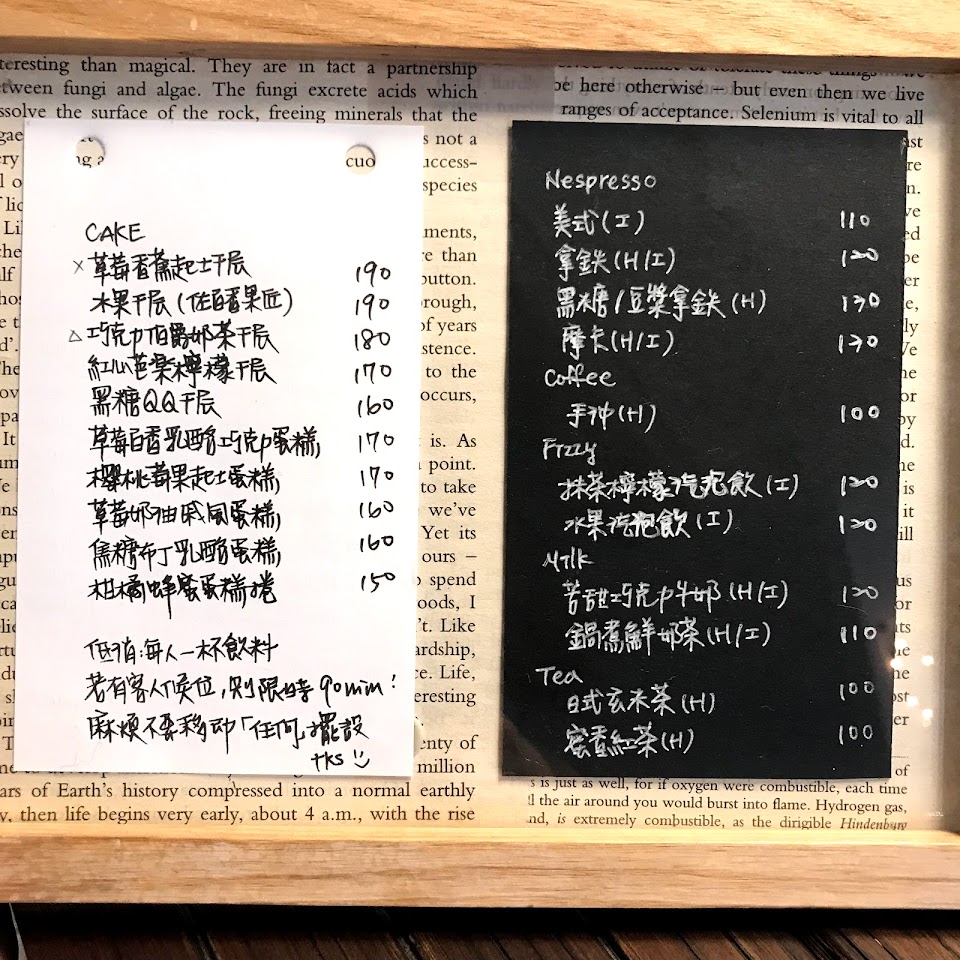 teresting than magical. They are in fact a partnership
tween fungi and algae. The fungi excrete acids which
ssolve the surface of the rock, freeing minerals that the
s not a
uccess-
species
ments,
re than
button.
orough,
of years
stence.
to the
occurs,
is. As
point.
to take
we've
Yet its
ours –
spend
oods, I
't. Like
ardship,
ce. Life,
eresting
enty of
million
ars of Earth's history compressed into a normal earthly
y, then life begins very early, about 4 a.m., with the rise
CAKE
×草莓香蕉起士千层 190
水果千层(佐百香果匠) 190
△巧克力伯爵奶茶千层 180
紅心芭樂檸檬千层 170
黑糖QQ千层 160
草莓百香乳酪巧克力蛋糕 170
櫻桃莓果起士蛋糕 170
草莓奶油戚風蛋糕 160
焦糖布丁乳酪蛋糕 160
柑橘蜂蜜蛋糕捲 150
低消:每人一杯飲料
若有客人候位,則限時90min!
麻煩不要移動「任何」擺設
tks
be here otherwise – but even then we live
ranges of acceptance. Selenium is vital to all
Nespresso
美式(I) 110
拿鉄(H/I) 120
黑糖/豆漿拿鉄(H) 130
摩卡(H/I) 130
Coffee
手沖(H) 100
Fizzy
抹茶檸檬汽泡飲(I) 120
水果汽泡飲(I) 120
Milk
苦甜巧克力牛奶(H/I) 120
鍋煮鮮奶茶(H/I) 110
Tea
日式玄米茶(H) 100
蜜香紅茶(H) 100
s is just as well, for if oxygen were combustible, each time
ll the air around you would burst into flame. Hydrogen gas,
nd, is extremely combustible, as the dirigible Hindenburg